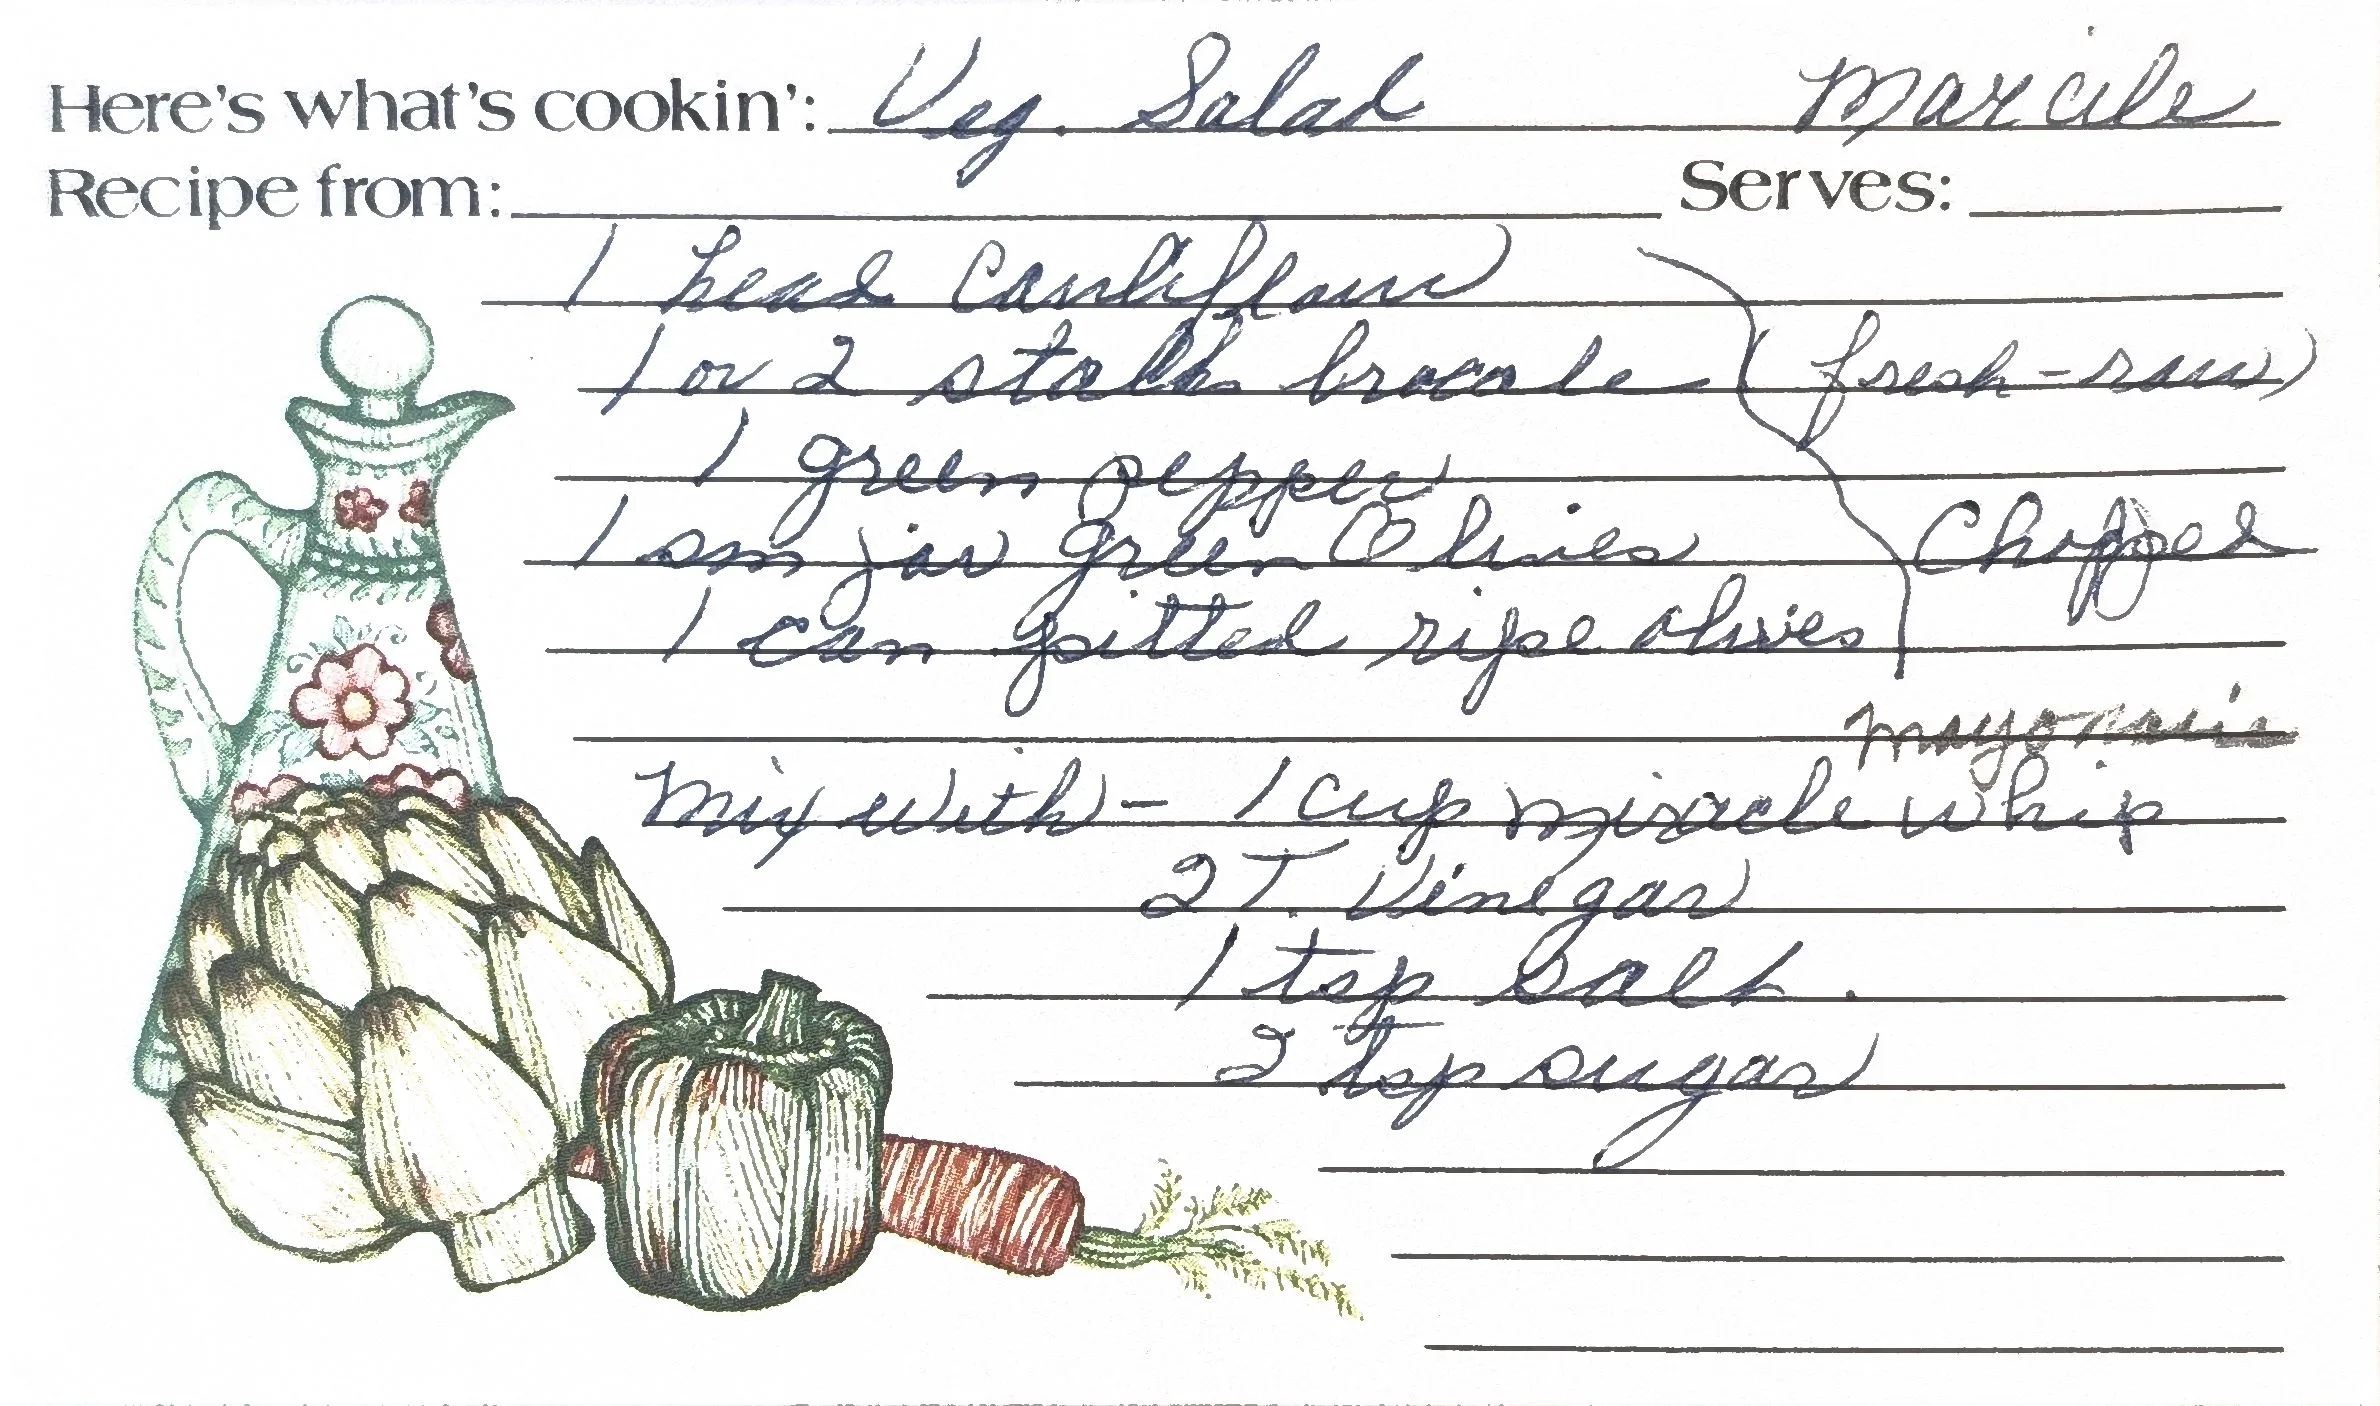 Here's what's cookin': Veg. Salad Marcile
Recipe from: Serves:
1 head Cauliflour
1 or 2 stalk brocole (fresh-raw)
1 green pepper
1 sm jar green Olives Chopped
1 can pitted ripe olives
mayonaise
Mix with - 1 cup miracle whip
2 T. Vinegar
1 tsp salt.
2 tsp sugar